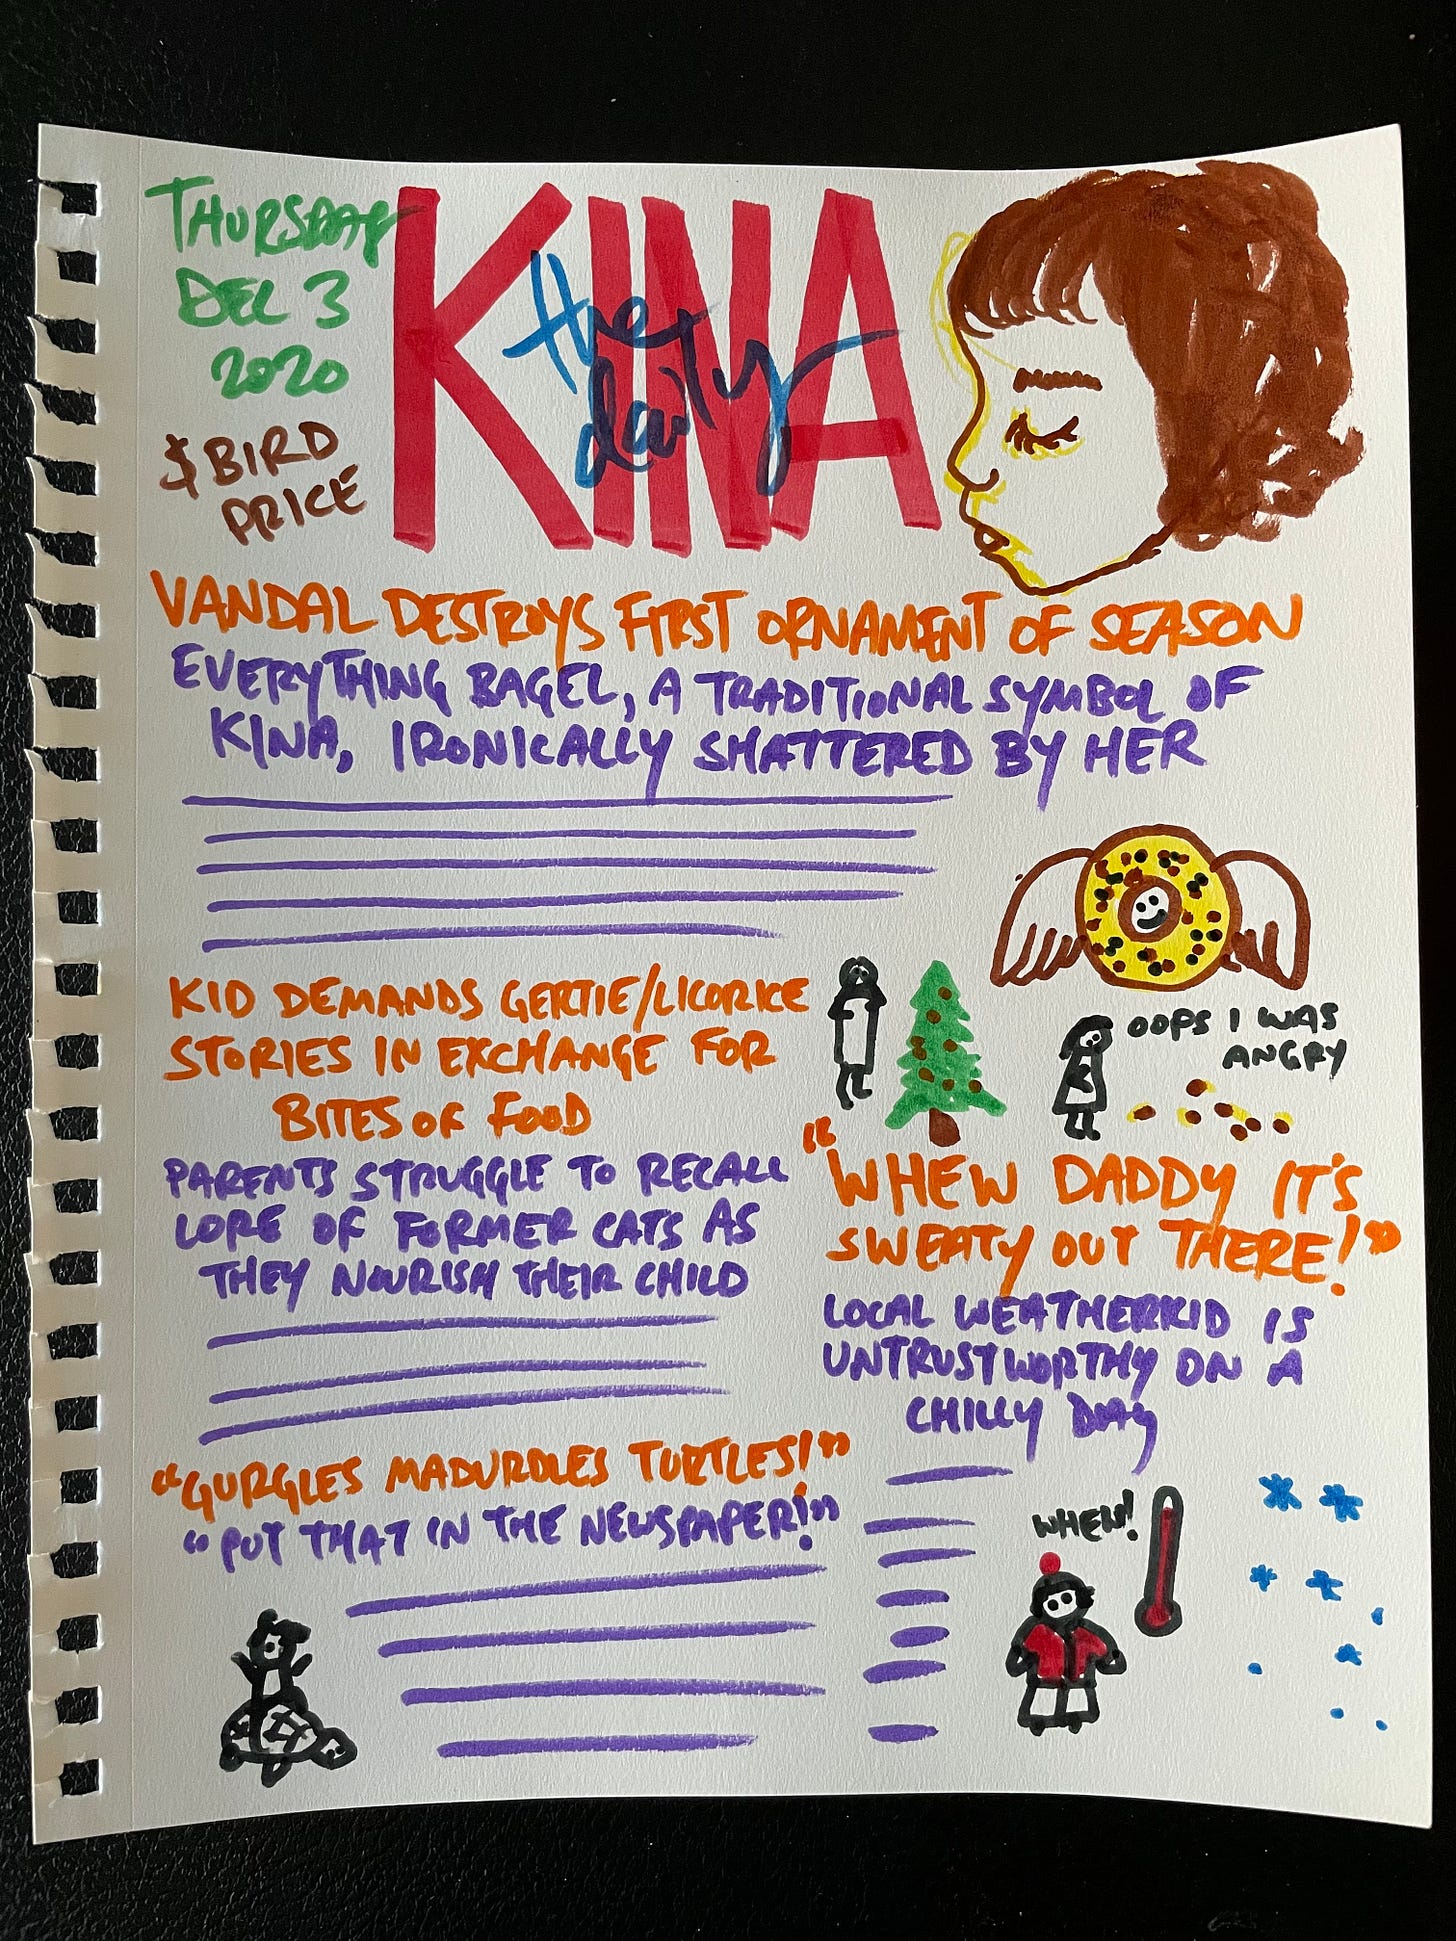 THURSDAY
DEC 3
2020
$ BIRD
PRICE
KINA
the
daily
VANDAL DESTROYS FIRST ORNAMENT OF SEASON
EVERYTHING BAGEL, A TRADITIONAL SYMBOL OF
KINA, IRONICALLY SHATTERED BY HER
OOPS I WAS
ANGRY
KID DEMANDS GERTIE/LICORICE
STORIES IN EXCHANGE FOR
BITES OF FOOD
PARENTS STRUGGLE TO RECALL
LORE OF FORMER CATS AS
THEY NOURISH THEIR CHILD
"WHEW DADDY IT'S
SWEATY OUT THERE!"
LOCAL WEATHERKID IS
UNTRUSTWORTHY ON A
CHILLY DAY
WHEW!
"GURGLES MADURDLES TURTLES!"
"PUT THAT IN THE NEWSPAPER!"